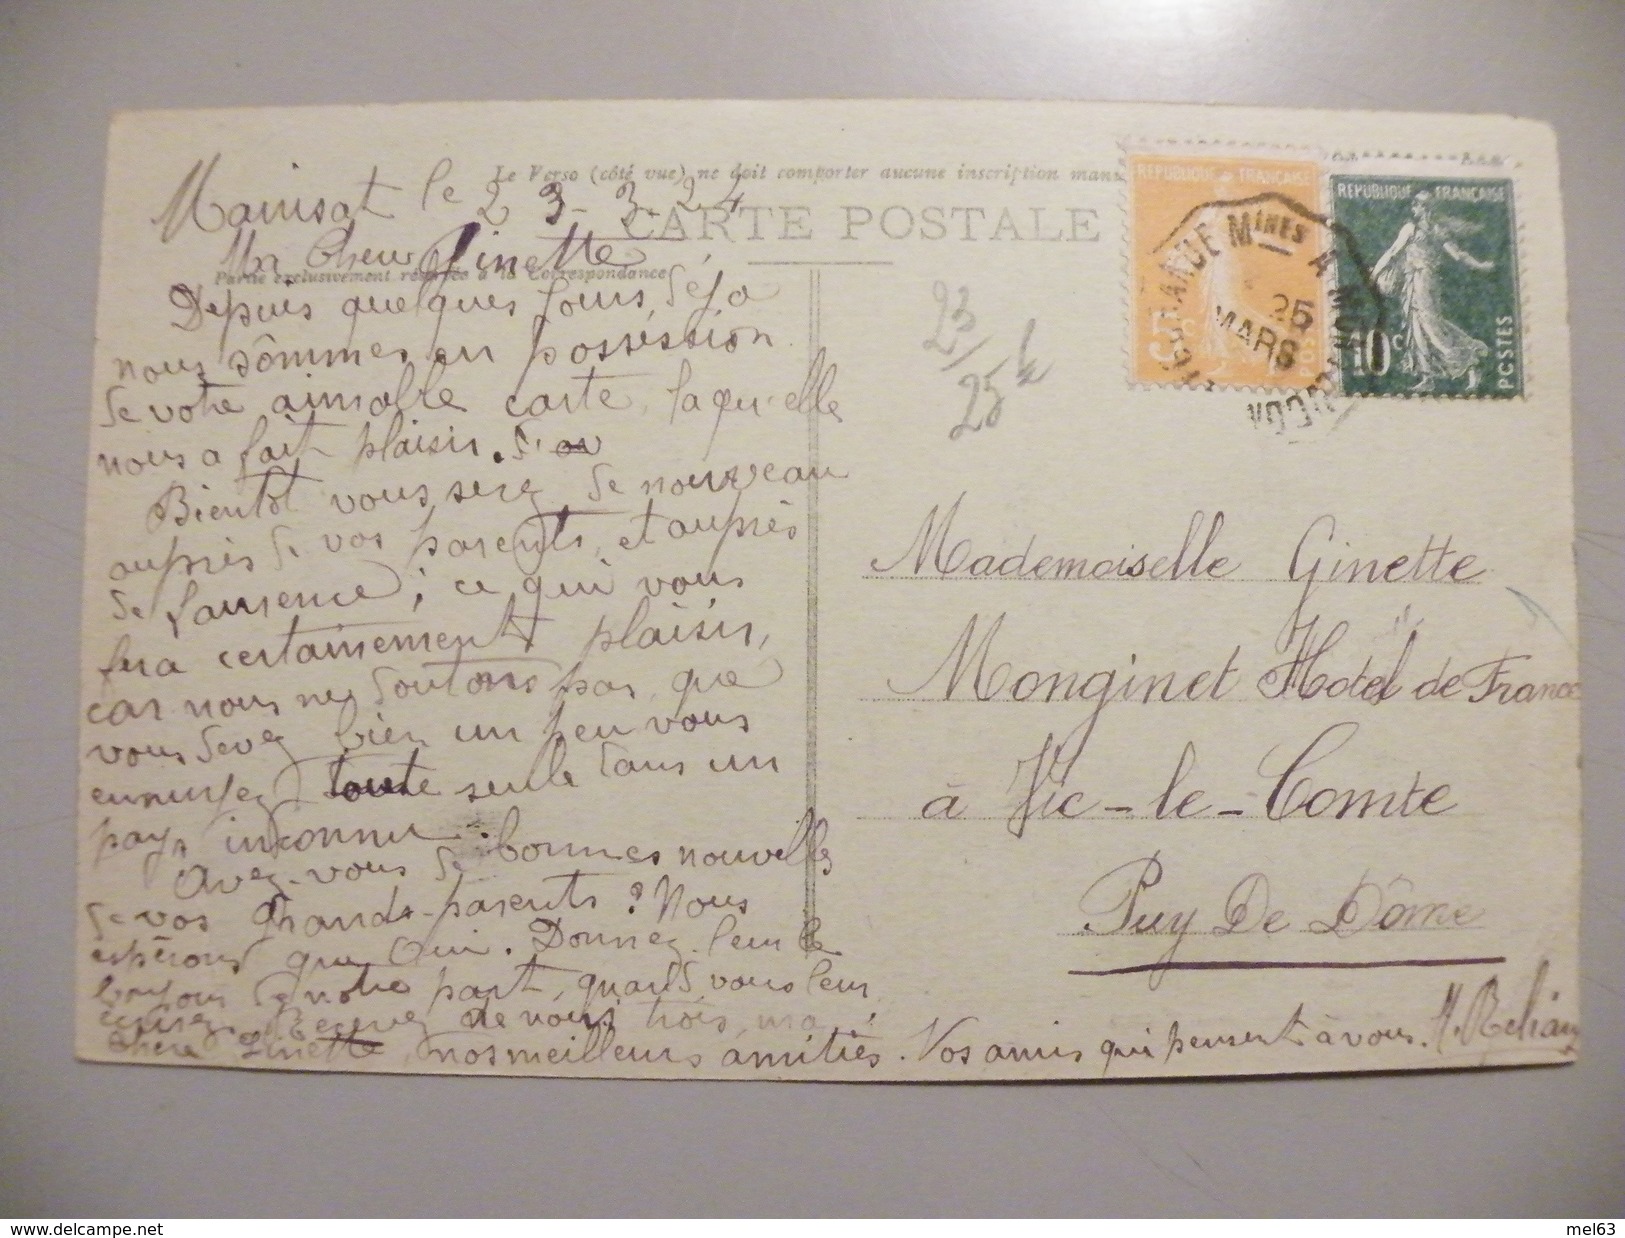 Le Verso (côté vue) ne doit comporter aucune inscription man
CARTE POSTALE
Partie exclusivement réservée à la Correspondance
Mainsat le 23-3-24
Ma Chère Ginette
Depuis quelques jours, déjà
nous sômmes en possession
de votre aimable carte, laquelle
nous a fait plaisir.
Bientôt vous serez de nouveau
auprès de vos parents, et auprès
de Laurence, ce qui vous
fera certainement plaisir,
car nous ne doutons pas que
vous devez bien un peu vous
ennuyez toute seule dans un
pays inconnu
Avez-vous de bonnes nouvelles
de vos Grands-parents? Nous
espérons que Oui. Donnez-leur le
bonjour de notre part, quand vous leur
écrirez. Recevez de nous trois, ma
chère Ginette, nos meilleurs amitiés. Vos amis qui pensent à vous.
23/25
REPUBLIQUE FRANÇAISE
5c
POSTES
REPUBLIQUE FRANÇAISE
10c
POSTES
MINES A
25
MARS
Mademoiselle Ginette
Monginet Hotel de France
à Vic-le-Comte
Puy De Dôme
delcampe.net
mel63